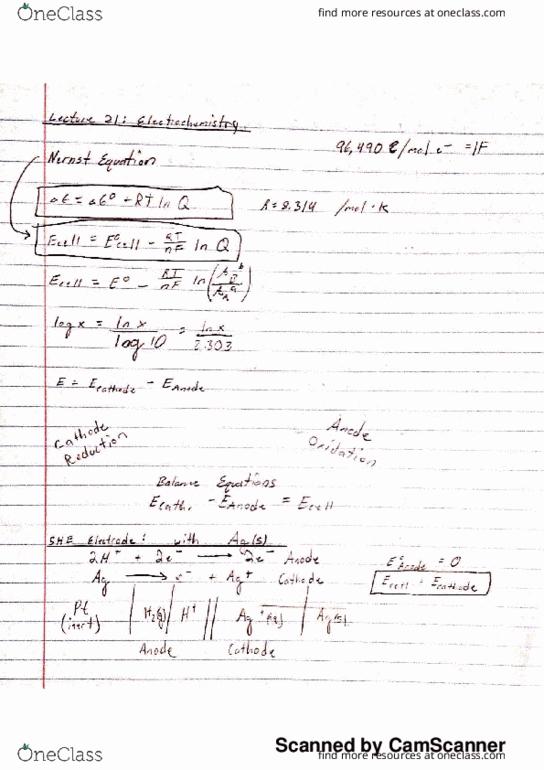 OneClass
find more resources at oneclass.com
Lecture 21: Electrochemistry
96,490 C/mol e- = 1F
Nernst Equation
ΔG = ΔG° + RT ln Q
R = 8.314 /mol·K
Ecell = E°cell - RT/nF ln Q
Ecell = E° - RT/nF ln
log x = ln x / log 10 = ln x / 2.303
E = Ecathode - EAnode
Cathode Reduction
Anode Oxidation
Balance Equations
Ecath. - EAnode = Ecell
SHE Electrode: with Ag(s)
2H+ + 2e- → 2e- Anode
E°Anode = 0
Ag → e- + Ag+ Cathode
Ecell = Ecathode
Pt (inert) | H2(g) | H+ || Ag+(aq) | Ag(s)
Anode Cathode
Scanned by CamScanner
OneClass
find more resources at oneclass.com